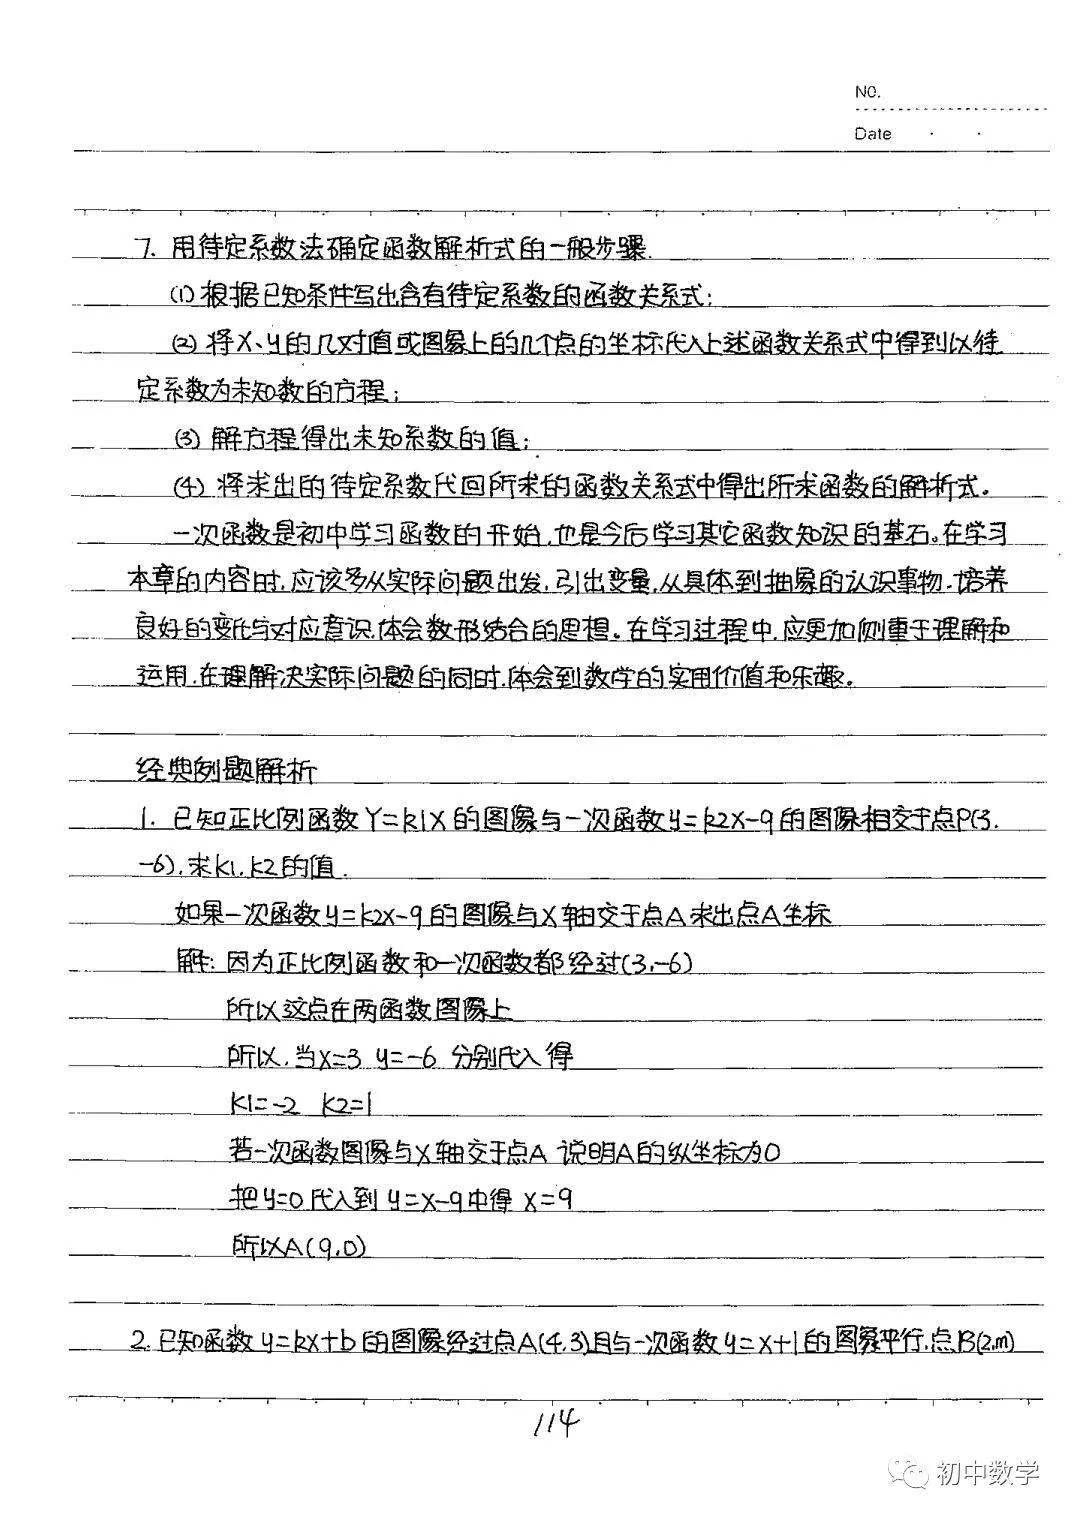 NO.
Date
7. 用待定系数法确定函数解析式的一般步骤.
(1) 根据已知条件写出含有待定系数的函数关系式;
(2) 将X、y的几对值或图象上的几个点的坐标代入上述函数关系式中得到以待
定系数为未知数的方程;
(3) 解方程得出未知系数的值;
(4) 将求出的待定系数代回所求的函数关系式中得出所求函数的解析式。
一次函数是初中学习函数的开始,也是今后学习其它函数知识的基石。在学习
本章的内容时,应该多从实际问题出发,引出变量,从具体到抽象的认识事物.培养
良好的变化与对应意识,体会数形结合的思想。在学习过程中,应更加侧重于理解和
运用,在理解决实际问题的同时,体会到数学的实用价值和乐趣。
经典例题解析
1. 已知正比例函数Y=k1X的图像与一次函数y=k2X-9的图像相交于点P(3,
-6),求k1,k2的值.
如果一次函数y=k2X-9的图像与X轴交于点A求出点A坐标
解:因为正比例函数和一次函数都经过(3,-6)
所以这点在两函数图像上
所以,当X=3 y=-6 分别代入得
k1=-2 k2=1
若一次函数图像与X轴交于点A 说明A的纵坐标为0
把y=0代入到y=X-9中得 X=9
所以A(9,0)
2.已知函数y=kx+b的图像经过点A(4,3)且与一次函数y=x+1的图象平行,点B(2,m)
114
初中数学